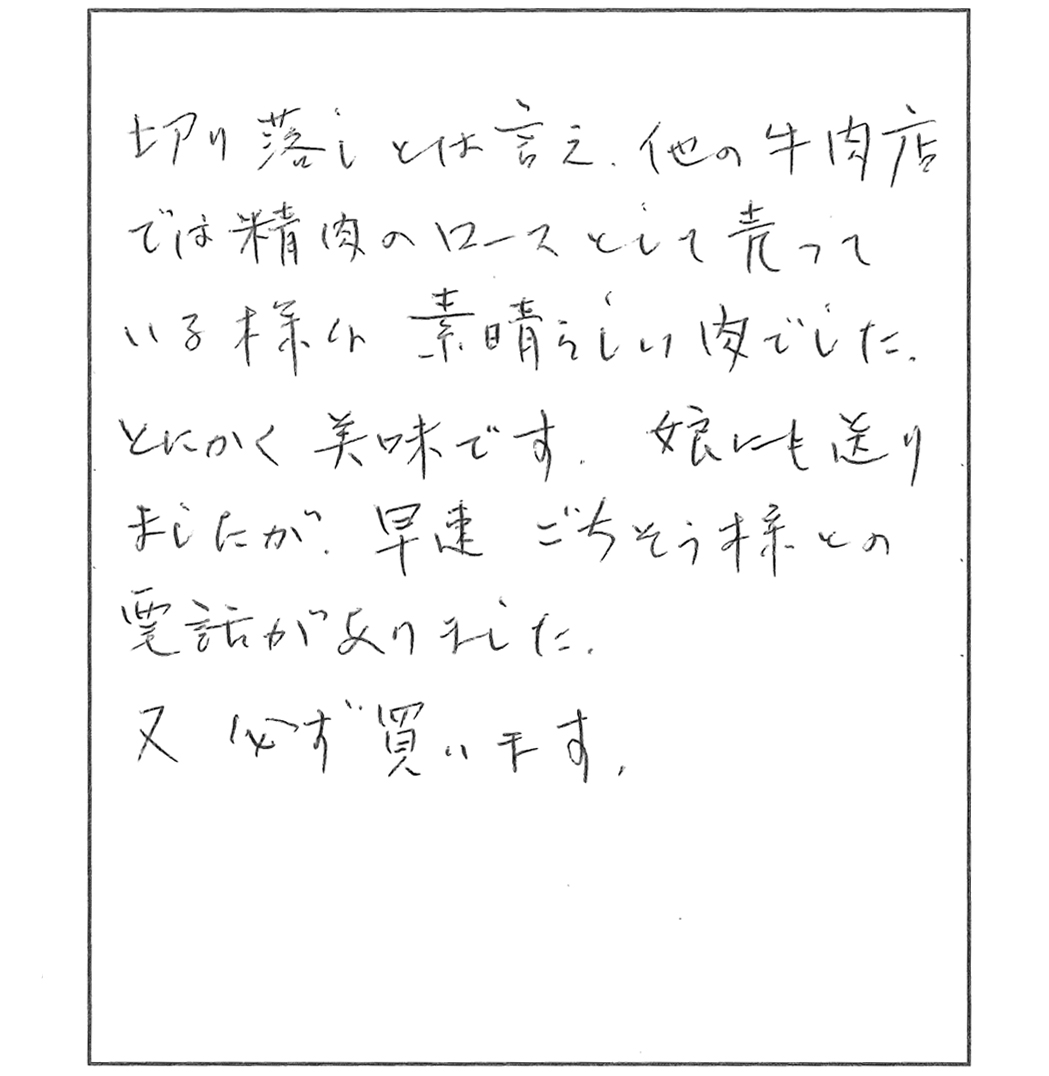 切り落しとは言え、他の牛肉店
では精肉のロースとして売って
いる様な素晴らしい肉でした。
とにかく美味です。 娘にも送り
ましたが、早速 ごちそう様との
電話がありました。
又 必ず買います。